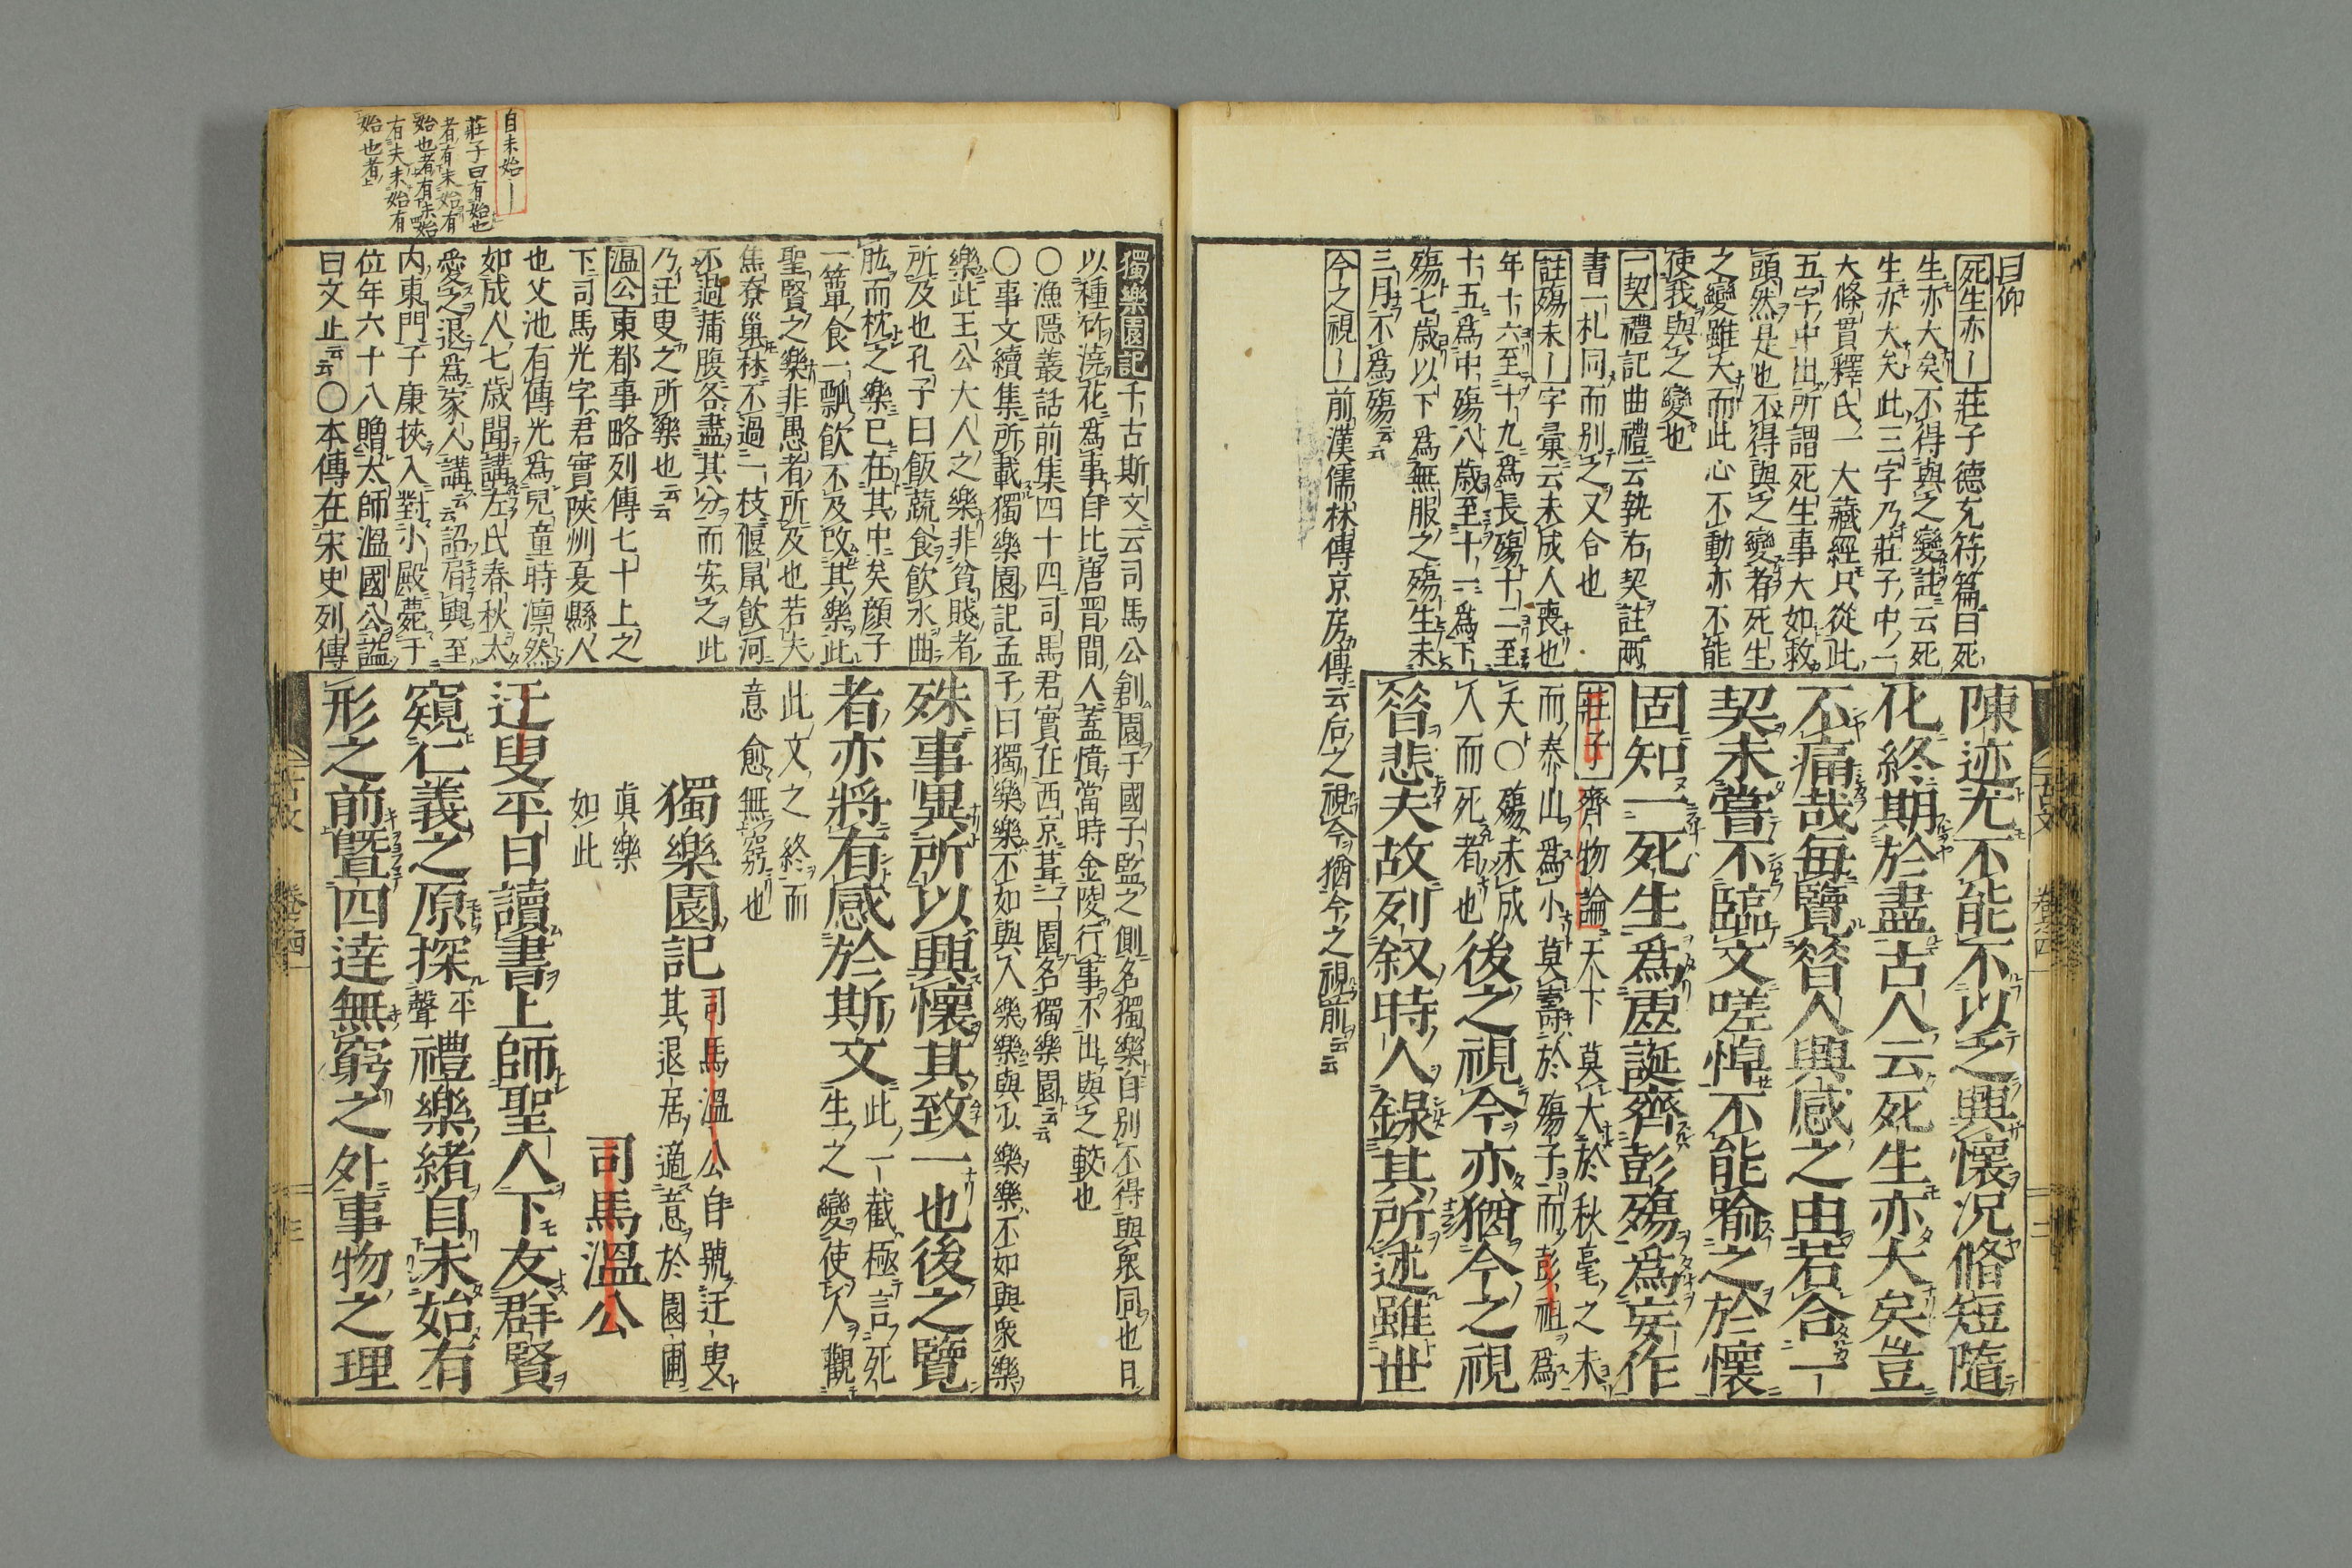 曰仰
死生亦｜莊子德充符篇曰死
生亦大矣不得與之變註云死
生亦大矣此三字乃莊子中一
大條貫釋氏一大藏經只從此
五字中出所謂死生事大如救
頭然是也不得與之變者死生
之變雖大而此心不動亦不能
使我與之變也
一契禮記曲禮云執右契註兩
書一札同而別之又合也
註殤未｜字彙云未成人喪也
年十六至十九爲長殤十二至
十五爲中殤八歲至十一爲下
殤七歲以下爲無服之殤生未
三月不爲殤云云
今之視｜前漢儒林傳京房傳云后之視今猶今之視前云云
陳迹尤不能不以之興懷況脩短隨
化終期於盡古人云死生亦大矣豈
不痛哉每覽昝人興感之由若合一
契未嘗不臨文嗟悼不能喻之於懷
固知一死生爲虛誕齊彭殤爲妄作
莊子齊物論天下莫大於秋毫之末
而泰山爲小莫壽於殤子而彭祖爲
夭〇殤未成
人而死者也後之視今亦猶今之視
昝悲夫故列叙時人錄其所述雖世
古文
卷之四
二
獨樂園記千古斯文云司馬公創園于國子監之側名獨樂自別不得與衆同也日
以種竹澆花爲事自比唐晉間人蓋憤當時金陵行事不出與之較也
〇漁隱叢話前集四十四司馬君實在西京葺一園名獨樂園云云
〇事文續集所載獨樂園記孟子曰獨樂樂不如與人樂樂與少樂樂不如與衆樂
樂此王公大人之樂非貧賤者
所及也孔子曰飯蔬食飲水曲
肱而枕之樂已在其中矣顔子
一簞食一瓢飲不及改其樂此
聖賢之樂非愚者所及也若夫
焦尞巢林不過一枝偃鼠飲河
不過蒲腹各盡其分而安之此
乃迂叟之所樂也云云
溫公東都事略列傳七十上之
下司馬光字君實陝州夏縣人
也父池有傳光爲兒童時凛然
如成人七歲聞講左氏春秋太
愛之退爲家人講云云詔肩輿至
內東門子康挾入對小殿薨于
位年六十八贈太師溫國公謚
曰文止云云〇本傳在宋史列傳
殊事異所以興懷其致一也後之覽
者亦將有感於斯文此一截極言死
生之變使人觀
此文之終而
意愈無窮也
獨樂園記司馬溫公自號迂叟
其退居適意於園圃
真樂
如此
司馬溫公
迂叟平日讀書上師聖人下友群賢
窺仁義之原探平聲禮樂緒自未始有
形之前曁四達無窮之外事物之理
自未始｜
莊子曰有始也
者有未始有
始也者有未始
有夫未始有
始也者上
古文
卷之四
三